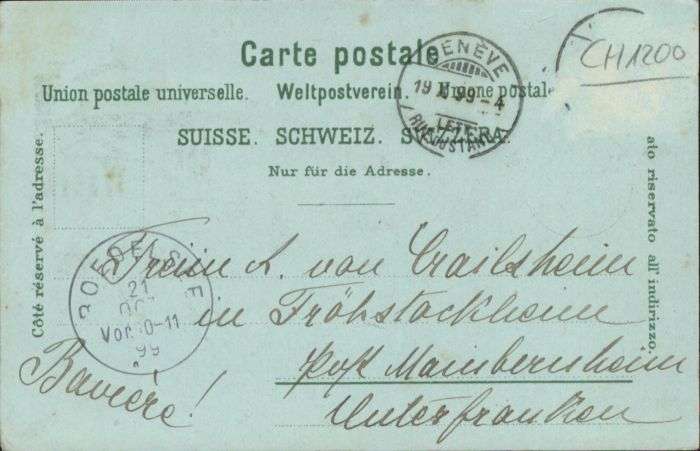 Carte postale
Union postale universelle. Weltpostverein. Unione postale
SUISSE. SCHWEIZ. SVIZZERA.
Nur für die Adresse.
Côté réservé à l'adresse.
ato riservato all' indirizzo.
GENÈVE
19 X 99-4
CH1200
ROEDELSEE
21
OCT
Vor. 10-11
99
Freiin A. von Crailsheim
in Fröhstockheim
Post Mainbernheim
Unterfranken
Bavière!